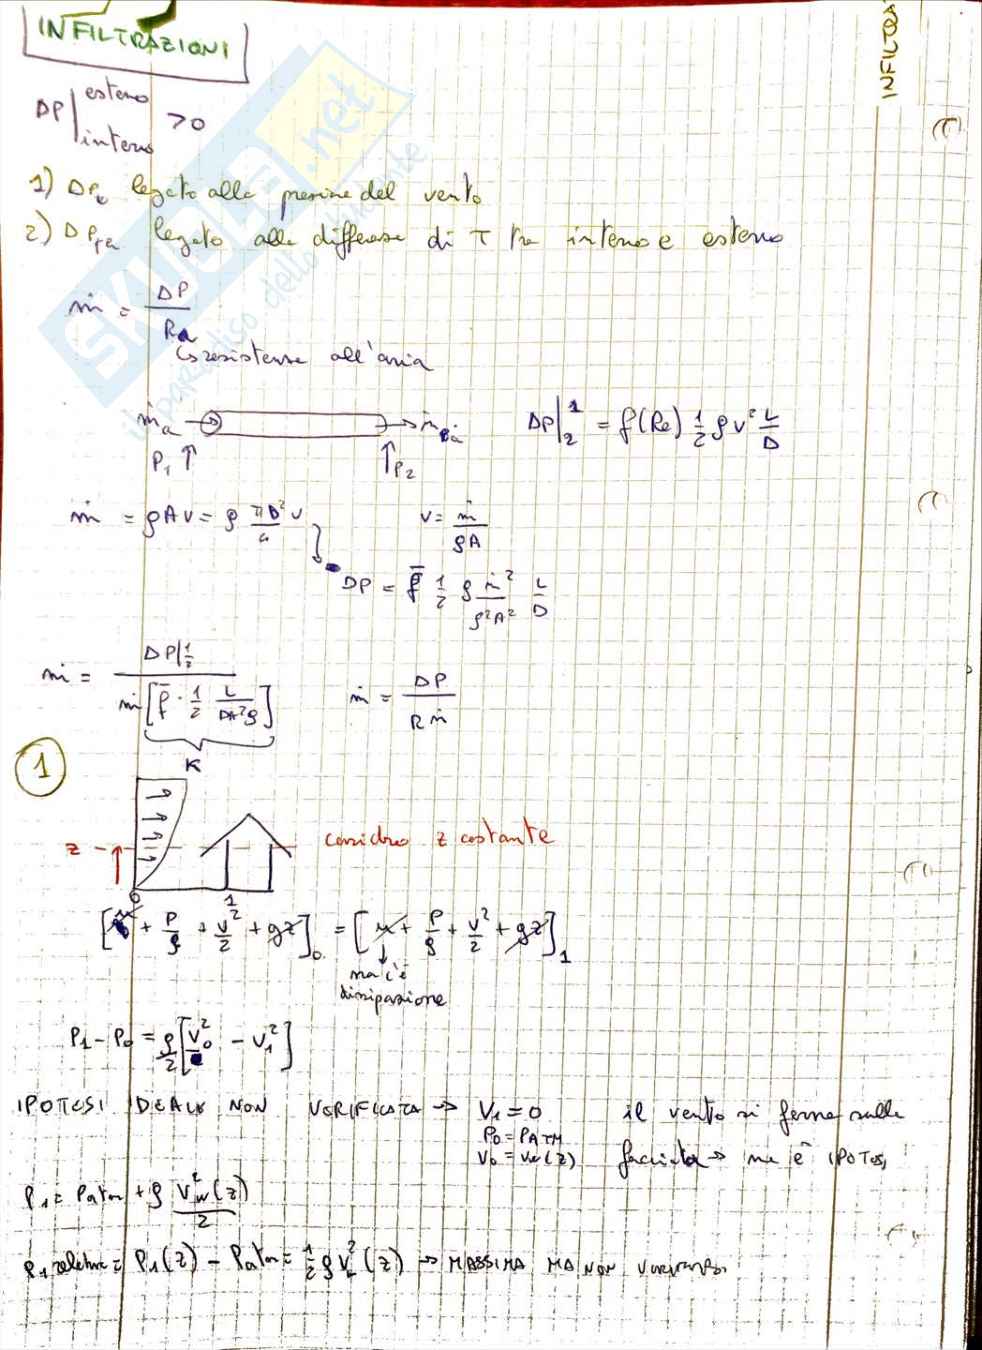 INFILTRAZIONI
INFILTRA
SKUOLA.net
il paradiso dello studente
ΔP | esterno interno > 0
1) ΔPv legato alla pressione del vento
2) ΔPTa legato alla differenza di T tra interno e esterno
ṁ = ΔP / Ra
↳ resistenza all'aria
ṁa → → ṁa
P1 ↑ ↑ P2
ΔP|₂¹ = f(Re) 1/2 ρ v² L/D
ṁ = ρAv = ρ πD²/4 v
v = ṁ / ρA
ΔP = f̄ 1/2 ρ ṁ²/ρ²A² L/D
ṁ = ΔP|½ / ṁ[f̄ · 1/2 L/DA²ρ]
K
ṁ = ΔP / Rṁ
1
z
considero z costante
0 1
[u + P/ρ + v²/2 + gz]₀ = [u + P/ρ + v²/2 + gz]₁
ma c'è
dissipazione
P1 - P0 = ρ/2 [v₀² - v₁²]
IPOTESI IDEALE NON VERIFICATA → V1 = 0 il vento si ferma sulla
P0 = PATM
V0 = Vw(z) facciata → ma è IPOTESI
P1 = Patm + ρ Vw²(z)/2
P1 relativa = P1(z) - Patm = 1/2 ρ v²(z) → MASSIMA MA NON